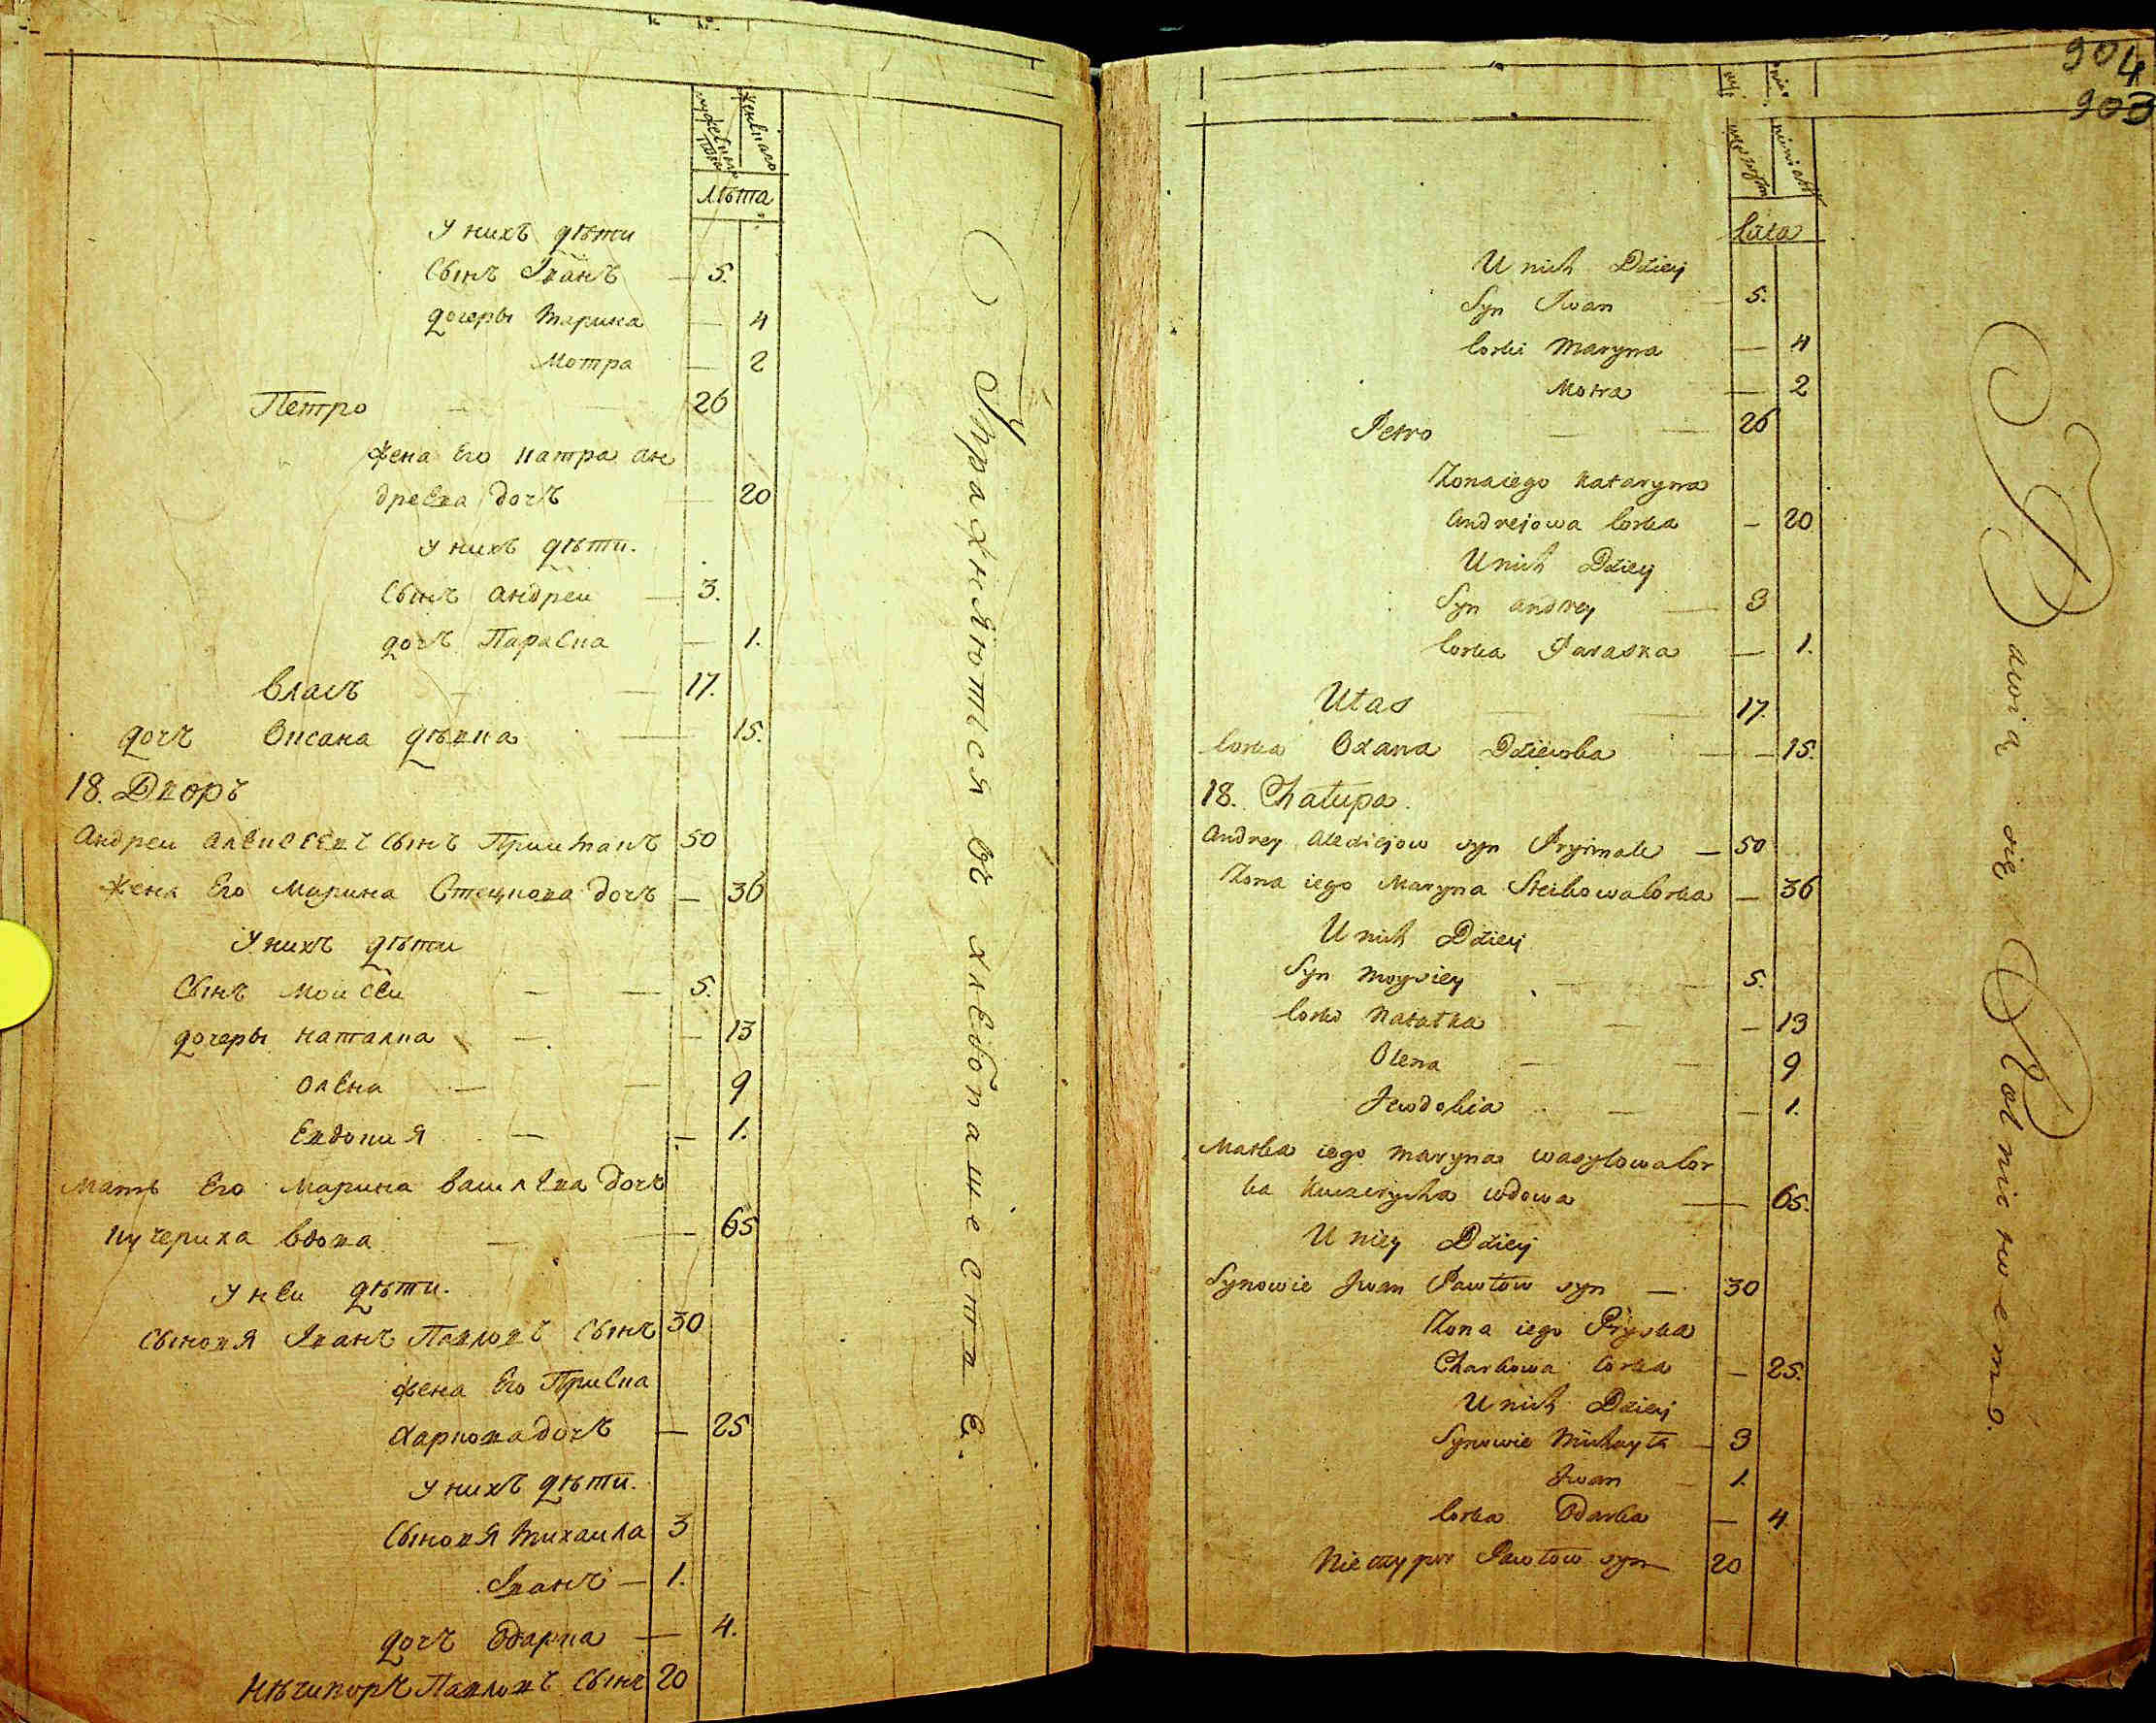 мужеска
пола
женскаго
лѣта
У нихъ дѣти
Сынъ Іванъ — 5.
дочеры Марина — 4
Мотра — 2
Петро — — 26
жена Его Катра Ан
дреева дочъ — 20
У нихъ дѣти.
Сынъ Андреи — 3.
дочъ Параска — 1.
Власъ — — 17.
дочъ Оксана дѣвка — 15.
18. Дворъ
Андреи Алексеевъ Сынъ Приимакъ 50
жена Его Марина Стецкова дочъ — 36
У нихъ дѣти
Сынъ Моисеи — — 5.
дочеры Наталка — — 13
Олена — — 9
Евдокия — — 1.
Мать Его Марина Василева дочъ
Кучериха вдова — — 65
У неи дѣти.
Сыновя Іванъ Павловъ Сынъ 30
жена Его Приска
Харкова дочъ — 25
У нихъ дѣти.
Сыновя Михаила 3
Іванъ — 1.
дочъ Одарка — 4.
Нѣчипоръ Павловъ Сынъ 20
Упражняются въ хлебопашестве.
904
903
Lata
U nich Dzieij
Syn Jwan — 5.
Corki Maryna — 4
Motra — 2
Petro — — 26
Żona iego Kataryna
Andrejowa Corka — 20
U nich Dzieij
Syn Andrey — 3
Corka Paraska — 1.
Ułas — — 17.
Corka Oxana Dziewka — — 15.
18. Chałupa.
Andrey Alexiejow syn Pryimak — 50
Żona iego Maryna Steckowa Corka — 36
U nich Dzieij
Syn Moysiey — — 5.
Corki Natałka — — 13
Olena — — 9
Jewdokia — — 1.
Matka iego Maryna Wasylowa Cor
ka Kuczerycha wdowa — 65.
U niey Dzieij
Synowie Jwan Pawłow syn — 30
Żona iego Pryska
Charkowa Corka — 25.
U nich Dzieij
Synowie Michayła — 3
Jwan — 1.
Corka Odarka — 4
Nieczypor Pawłow syn — 20
Bawią się Rolnictwem.